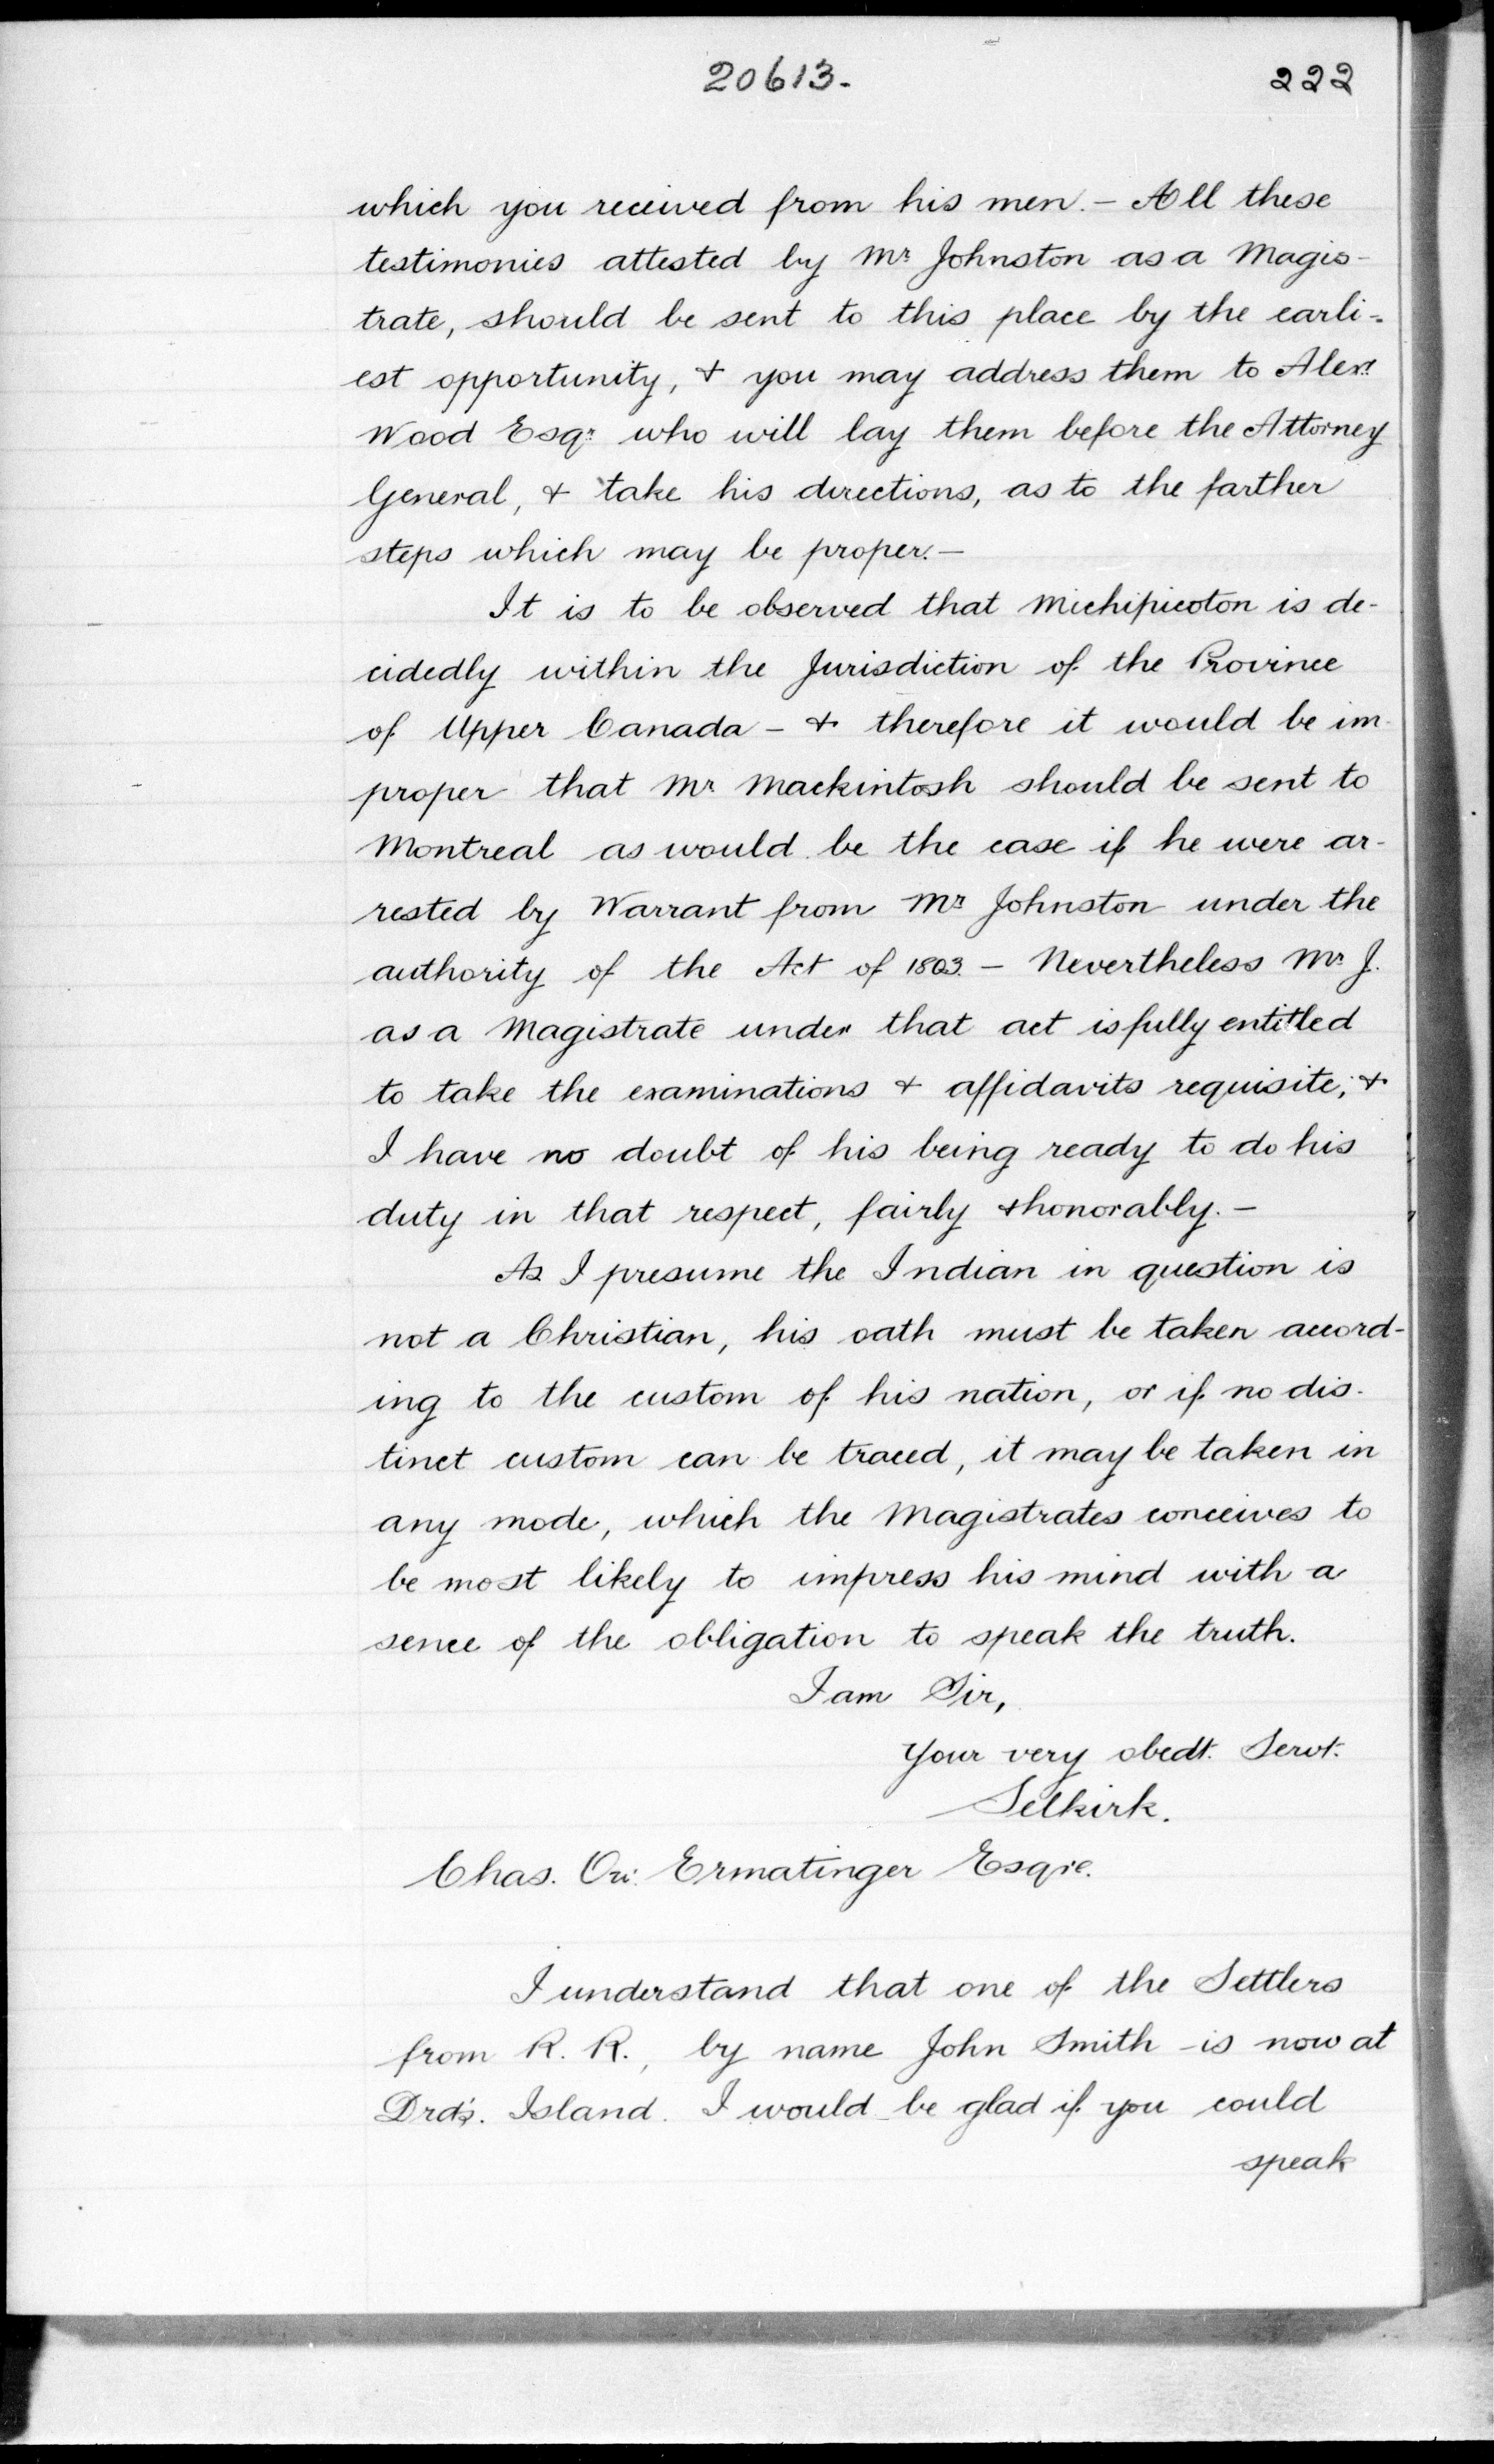 20613.
222
which you received from his men. - All these
testimonies attested by Mr Johnston as a Magis-
trate, should be sent to this place by the earli-
est opportunity, & you may address them to Alexr.
Wood Esqr. who will lay them before the Attorney
General, & take his directions, as to the farther
steps which may be proper. -
It is to be observed that Michipicoton is de-
cidedly within the Jurisdiction of the Province
of Upper Canada - & therefore it would be im-
proper that Mr Mackintosh should be sent to
Montreal as would be the case if he were ar-
rested by Warrant from Mr Johnston under the
authority of the Act of 1803. - Nevertheless Mr J.
as a Magistrate under that act is fully entitled
to take the examinations & affidavits requisite; &
I have no doubt of his being ready to do his
duty in that respect, fairly & honorably. -
As I presume the Indian in question is
not a Christian, his oath must be taken accord-
ing to the custom of his nation, or if no dis-
tinct custom can be traced, it may be taken in
any mode, which the Magistrates conceives to
be most likely to impress his mind with a
sence of the obligation to speak the truth.
I am Sir,
Your very obedt. Servt.
Selkirk.
Chas. Ermatinger Esqre.
I understand that one of the Settlers
from R. R., by name John Smith - is now at
Drd's. Island. I would be glad if you could
speak